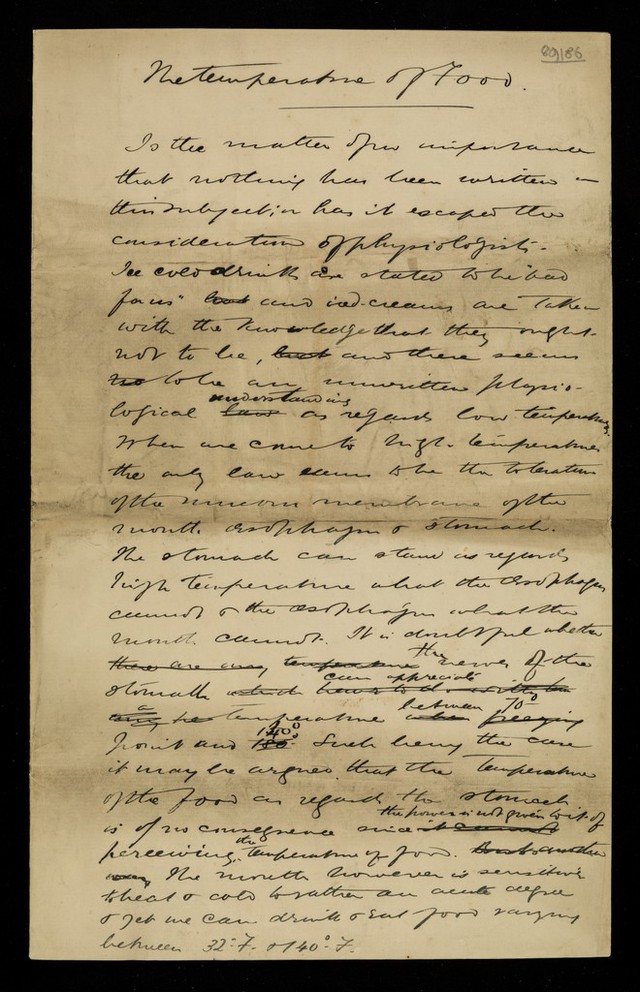 89/86
The temperature of Food.
Is the matter of no importance
that nothing has been written on
this subject, or has it escaped the
consideration of physiologists.
Ice cold drinks are stated to be "bad
for us" but and iced-creams are taken
with the knowledge that they ought
not to be, but and there seems
no to be an unwritten physio-
understanding
logical law as regards low temperatures.
When we come to high temperatures
the only law seems to be the toleration
of the mucous membrane of the
mouth oesophagus & stomach.
The stomach can stand as regards
high temperature what the oesophagus
cannot & the oesophagus what the
mouth cannot. It is doubtful whether
there are any temperature the nerves of the
can appreciate
stomach
a between 70°
temperature when freezing
140°
point and 150° Such being the case
it may be argued that the temperature
of the food as regards the stomach
the power is not given to it of
is of no consequence since it cannot
the
perceiving temperature of food.
The mouth however is sensitive
to heat & cold to rather an acute degree
& yet we can drink & eat food varying
between 32° F. & 140° F.